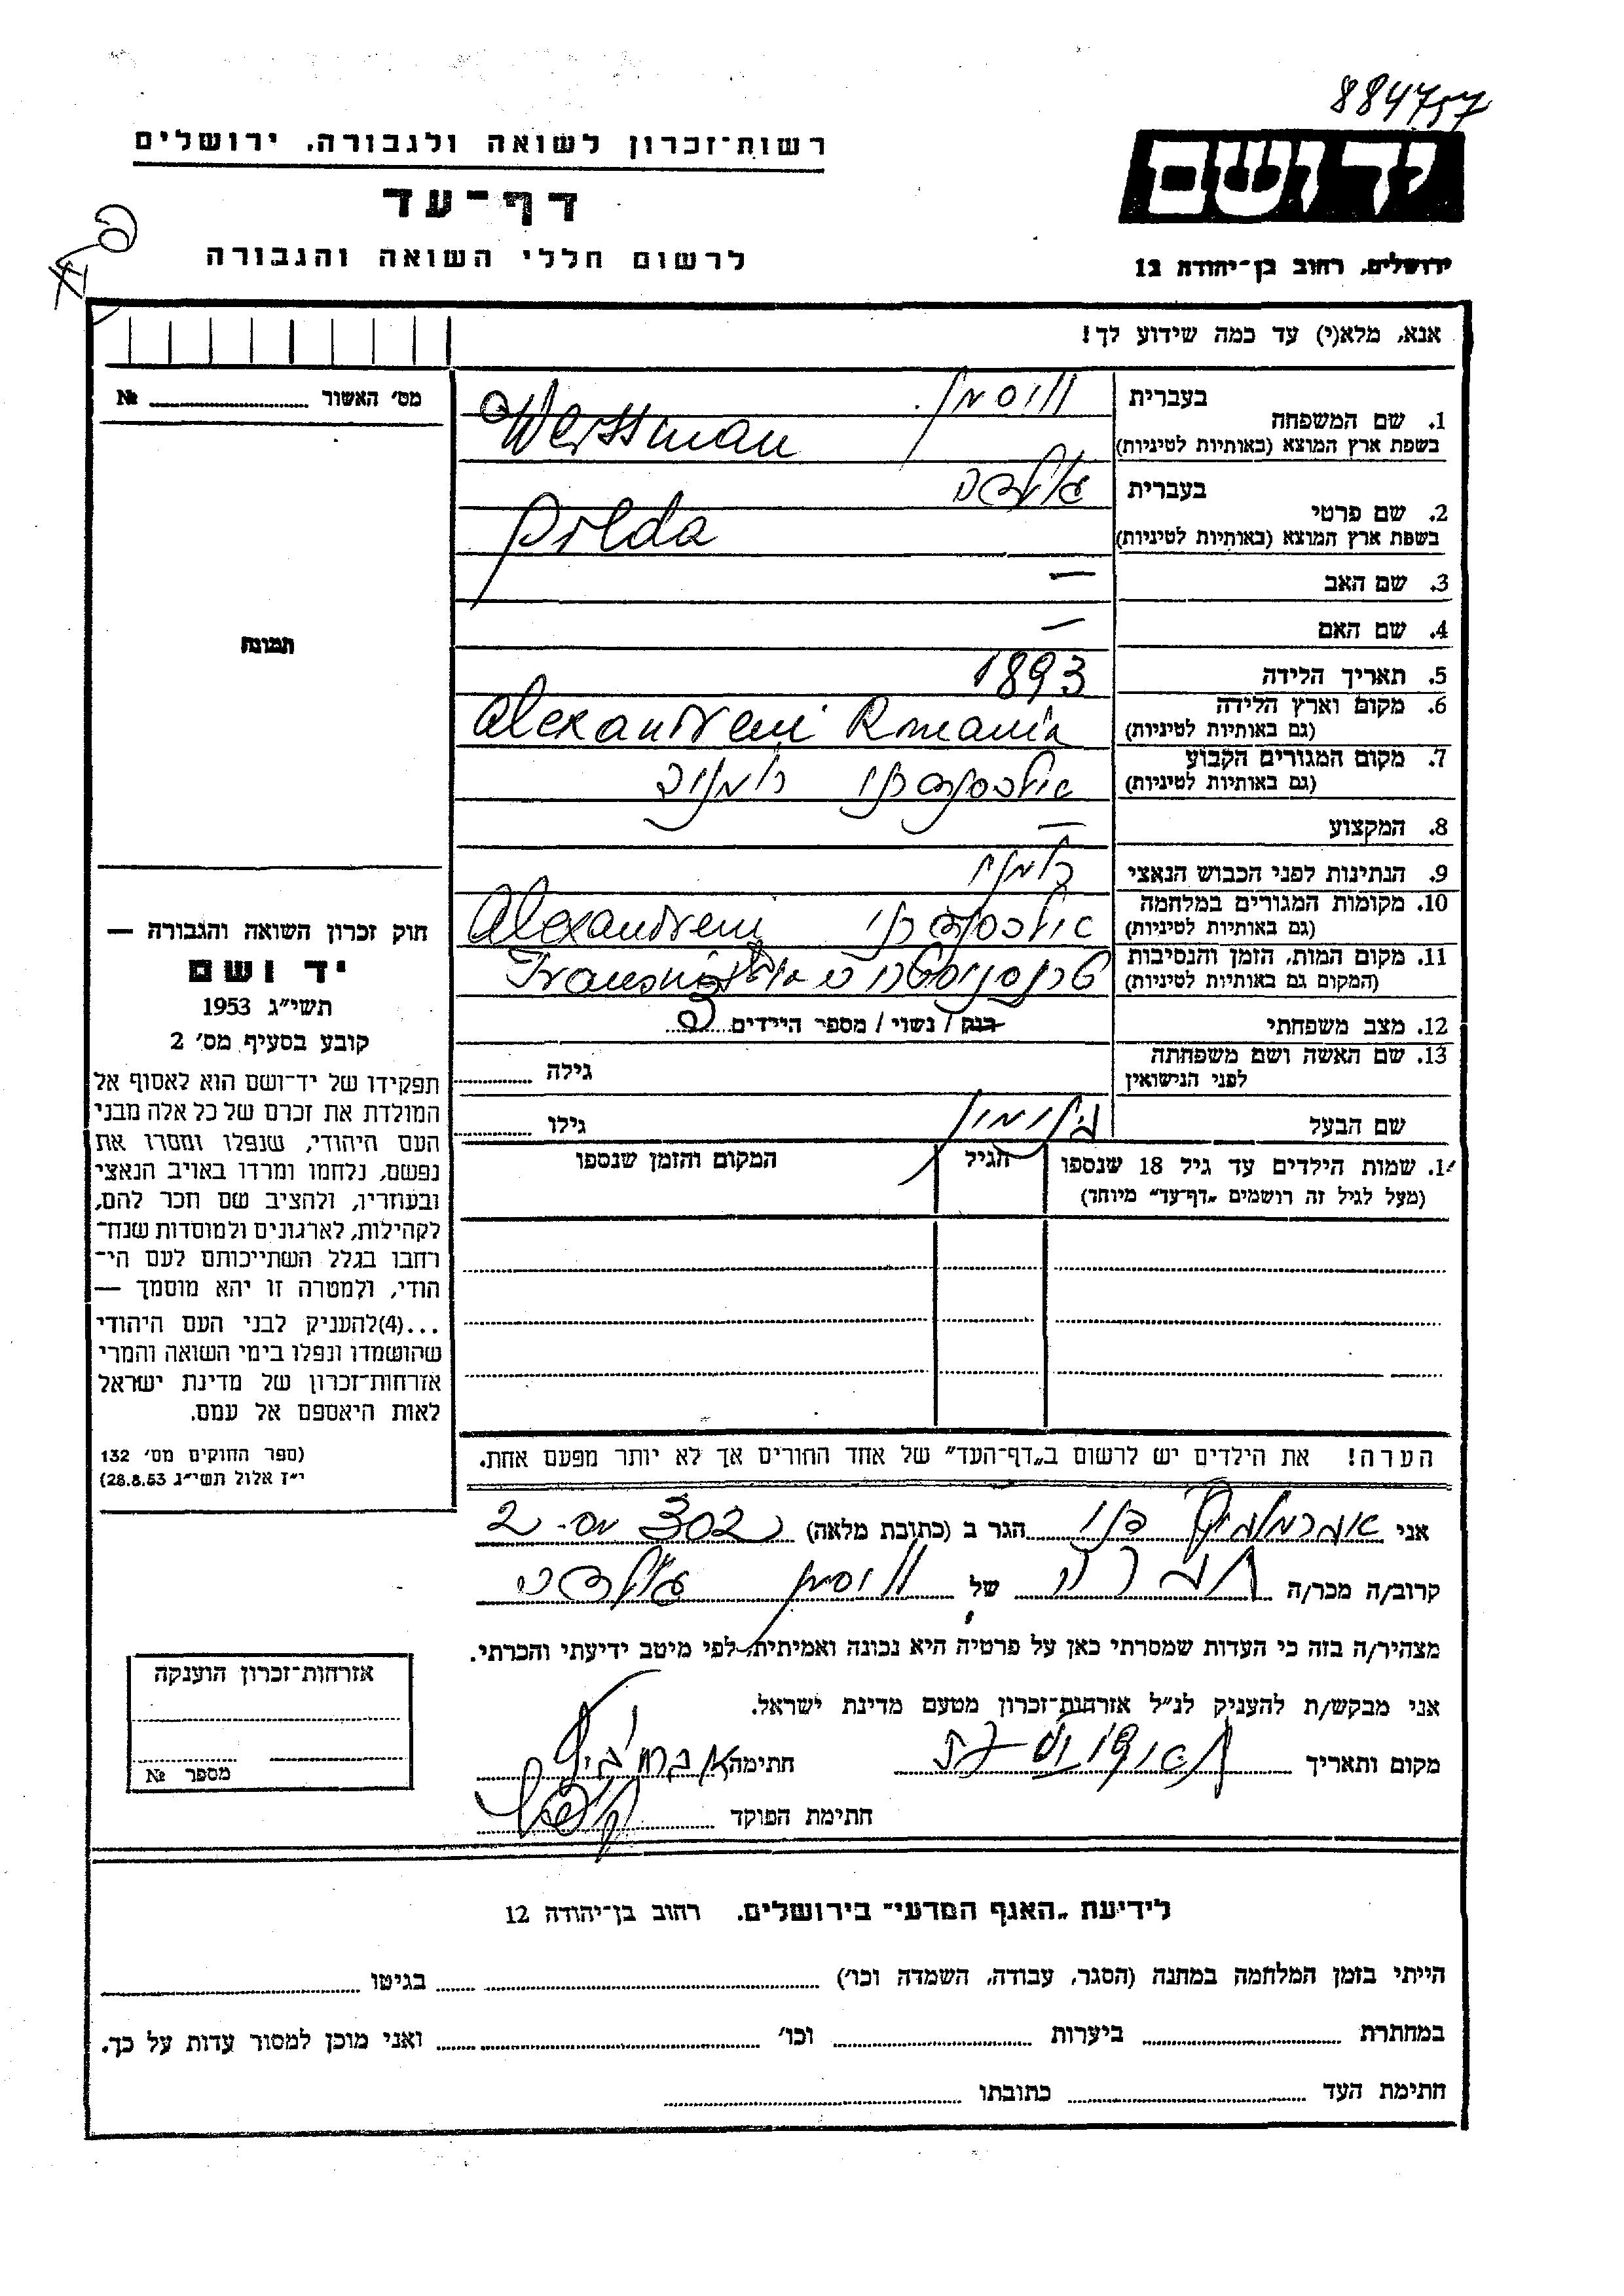 884757
רשות־זכרון לשואה ולגבורה, ירושלים
יד ושם
דף־עד
לרשום חללי השואה והגבורה
ירושלים, רחוב בן־יהודה 12
אנא, מלא(י) עד כמה שידוע לך!
מס׳ האשור № 
תמונה
חוק זכרון השואה והגבורה —
יד ושם
תשי״ג 1953
קובע בסעיף מס׳ 2
תפקידו של יד־ושם הוא לאסוף אל
המולדת את זכרם של כל אלה מבני
העם היהודי, שנפלו ומסרו את
נפשם, נלחמו ומרדו באויב הנאצי
ובעוזריו, ולהציב שם וזכר להם,
לקהילות, לארגונים ולמוסדות שנח־
רחבו בגלל השתייכותם לעם הי־
הודי, ולמטרה זו יהא מוסמך —
...(4)להעניק לבני העם היהודי
שהושמדו ונפלו בימי השואה והמרי
אזרחות־זכרון של מדינת ישראל
לאות היאספם אל עמם.
(ספר החוקים מס׳ 132
י״ז אלול תשי״ג 28.8.53)
1. שם המשפחה בעברית ווסמן
בשפת ארץ המוצא (באותיות לטיניות) Werssman
2. שם פרטי בעברית
בשפת ארץ המוצא (באותיות לטיניות)
3. שם האב —
4. שם האם —
5. תאריך הלידה 1893
6. מקום וארץ הלידה (גם באותיות לטיניות) Alexandreni Romania
7. מקום המגורים הקבוע (גם באותיות לטיניות) אלכסנדרני רומניה
8. המקצוע —
9. הנתינות לפני הכבוש הנאצי רומנית
10. מקומות המגורים במלחמה (גם באותיות לטיניות) אלכסנדרני Alexandreni
11. מקום המות, הזמן והנסיבות (המקום גם באותיות לטיניות) טרנסניסטריה
12. מצב משפחתי רווק / נשוי / מספר הילדים
13. שם האשה ושם משפחתה לפני הנישואין גילה
שם הבעל גילו
שמות הילדים עד גיל 18 שנספו הגיל המקום והזמן שנספו
(מעל לגיל זה רושמים „דף־עד״ מיוחד)
הערה! את הילדים יש לרשום ב„דף־העד״ של אחד ההורים אך לא יותר מפעם אחת.
אני הגר ב (כתובת מלאה) 302
קרוב/ה מכר/ה חברה של ווסמן
מצהיר/ה בזה כי העדות שמסרתי כאן על פרטיה היא נכונה ואמיתית, לפי מיטב ידיעתי והכרתי.
אני מבקש/ת להעניק לנ״ל אזרחות־זכרון מטעם מדינת ישראל.
מקום ותאריך חתימה
חתימת הפוקד
אזרחות־זכרון הוענקה
מספר №
לידיעת „האגף המדעי״ בירושלים. רחוב בן־יהודה 12
הייתי בזמן המלחמה במחנה (הסגר, עבודה, השמדה וכו׳) בגיטו
במחתרת ביערות וכו׳ ואני מוכן למסור עדות על כך.
חתימת העד כתובתו